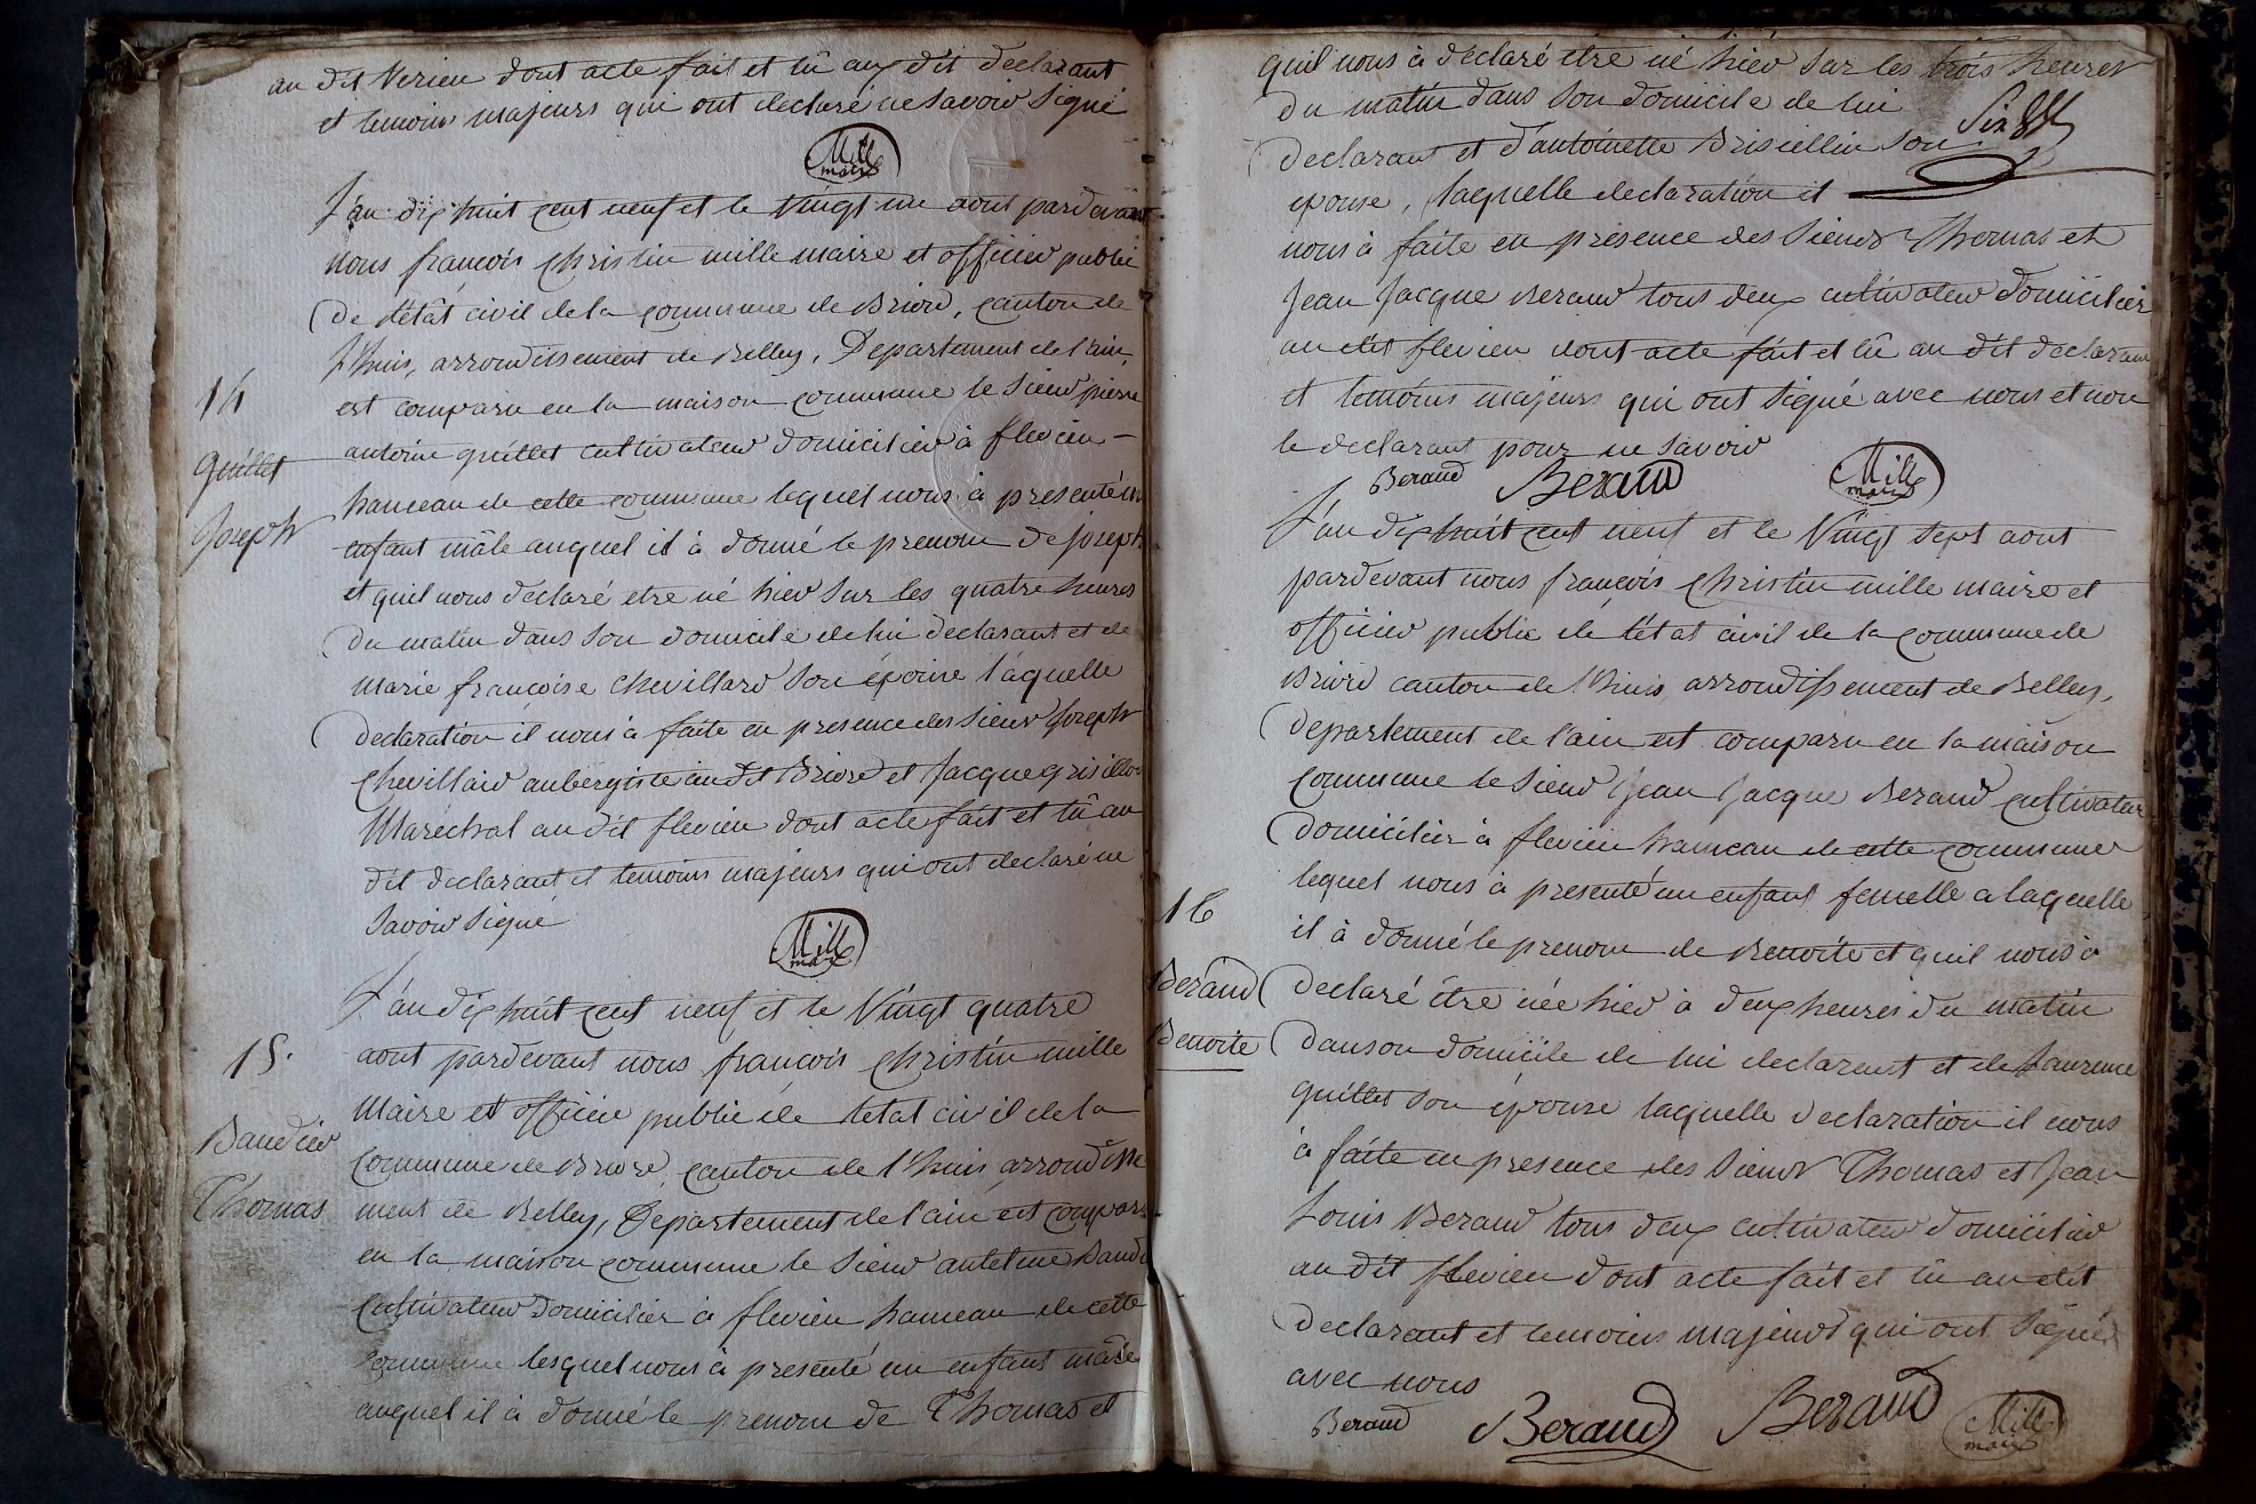 au dit Verieu dont acte fait et lû aux dit declarant
et temoins majeurs qui ont declaré ne savoir signé
Mille
maire
L'an dix huit cent neuf et le vingt un aout pardevant
nous françois Christin mille maire et officier public
De l'état civil de la commune de Briord, canton de
L'huis, arrondissement de Belley, Departement de l'ain,
14
est comparu en la maison commune le sieur pierre
antoine quillet cultivateur domicilier à flevieu
Quillet
hameau de cette commune lequel nous à presenté un
Joseph
enfant mâle auquel il à donné le prenom De joseph
et quil nous declaré etre né hier sur les quatre heures
Du matin dans son domicile de lui declarant et de
Marie françoise Chevillard son épouse l'aquelle
Declaration il nous à faite en presence des sieur Joseph
Chevillard aubergiste au dit Briord et Jacque grisillon
Maréchal au dit flevieu dont acte fait et lû au
dit declarant et temoins majeurs qui ont declaré ne
savoir signé
Mille
maire
L'an dix huit cent neuf et le Vingt quatre
15.
aout pardevant nous françois Christin mille
Maire et officier public de l'etat civil de la
Baudier
Commune de Briord, canton de l'huis arrondisse
Thomas
ment de Belley, Departement de l'ain est comparu
en la maison commune le sieur antelme
Cultivateur Domicilier à flevieu hameau de cette
commune lesquel nous à presenté un enfant mâle
auquel il à donné le prenom de Thomas et
quil nous à déclaré etre né hier sur les trois heures
Du matin Dans son domicile de lui
Six
Declarant et d'antoinette son
epouse, laquelle declaration il
nous à faite en présence des sieur Thomas et
Jean Jacque Beraud tous deux cultivateur Domicilier
au dit flevieu dont acte fait et lû au dit declarant
et temoins majeurs qui ont signé avec nous et non
le declarant pour ne savoir
Beraud Beraud Mille
maire
L'an dix huit cent neuf et le Vingt sept aout
pardevant nous françois Christin mille maire et
officier public de l'état civil de la commune de
Briord canton de l'huis, arrondissement de Belley,
Departement de l'ain est comparu en la maison
Commune le sieur Jean Jacque Beraud cultivateur
Domicilier à flevieu hameau de cette commune
lequel nous à presenté un enfant femelle a laquelle
16
il à donné le prenom de Benoite et quil nous à
Beraud
Declaré être née hier à deux heures du matin
Benoite
Dans son domicile de lui declarent et de Laurence
quillet son épouse laquelle declaration il nous
à faite en presence des sieur Thomas et Jean
Louis Beraud tous deux cultivateur domicilier
au dit flevieu dont acte fait et lû au dit
Declarant et temoins majeurs qui ont signés
avec nous
Beraud Beraud Beraud Mille
maire